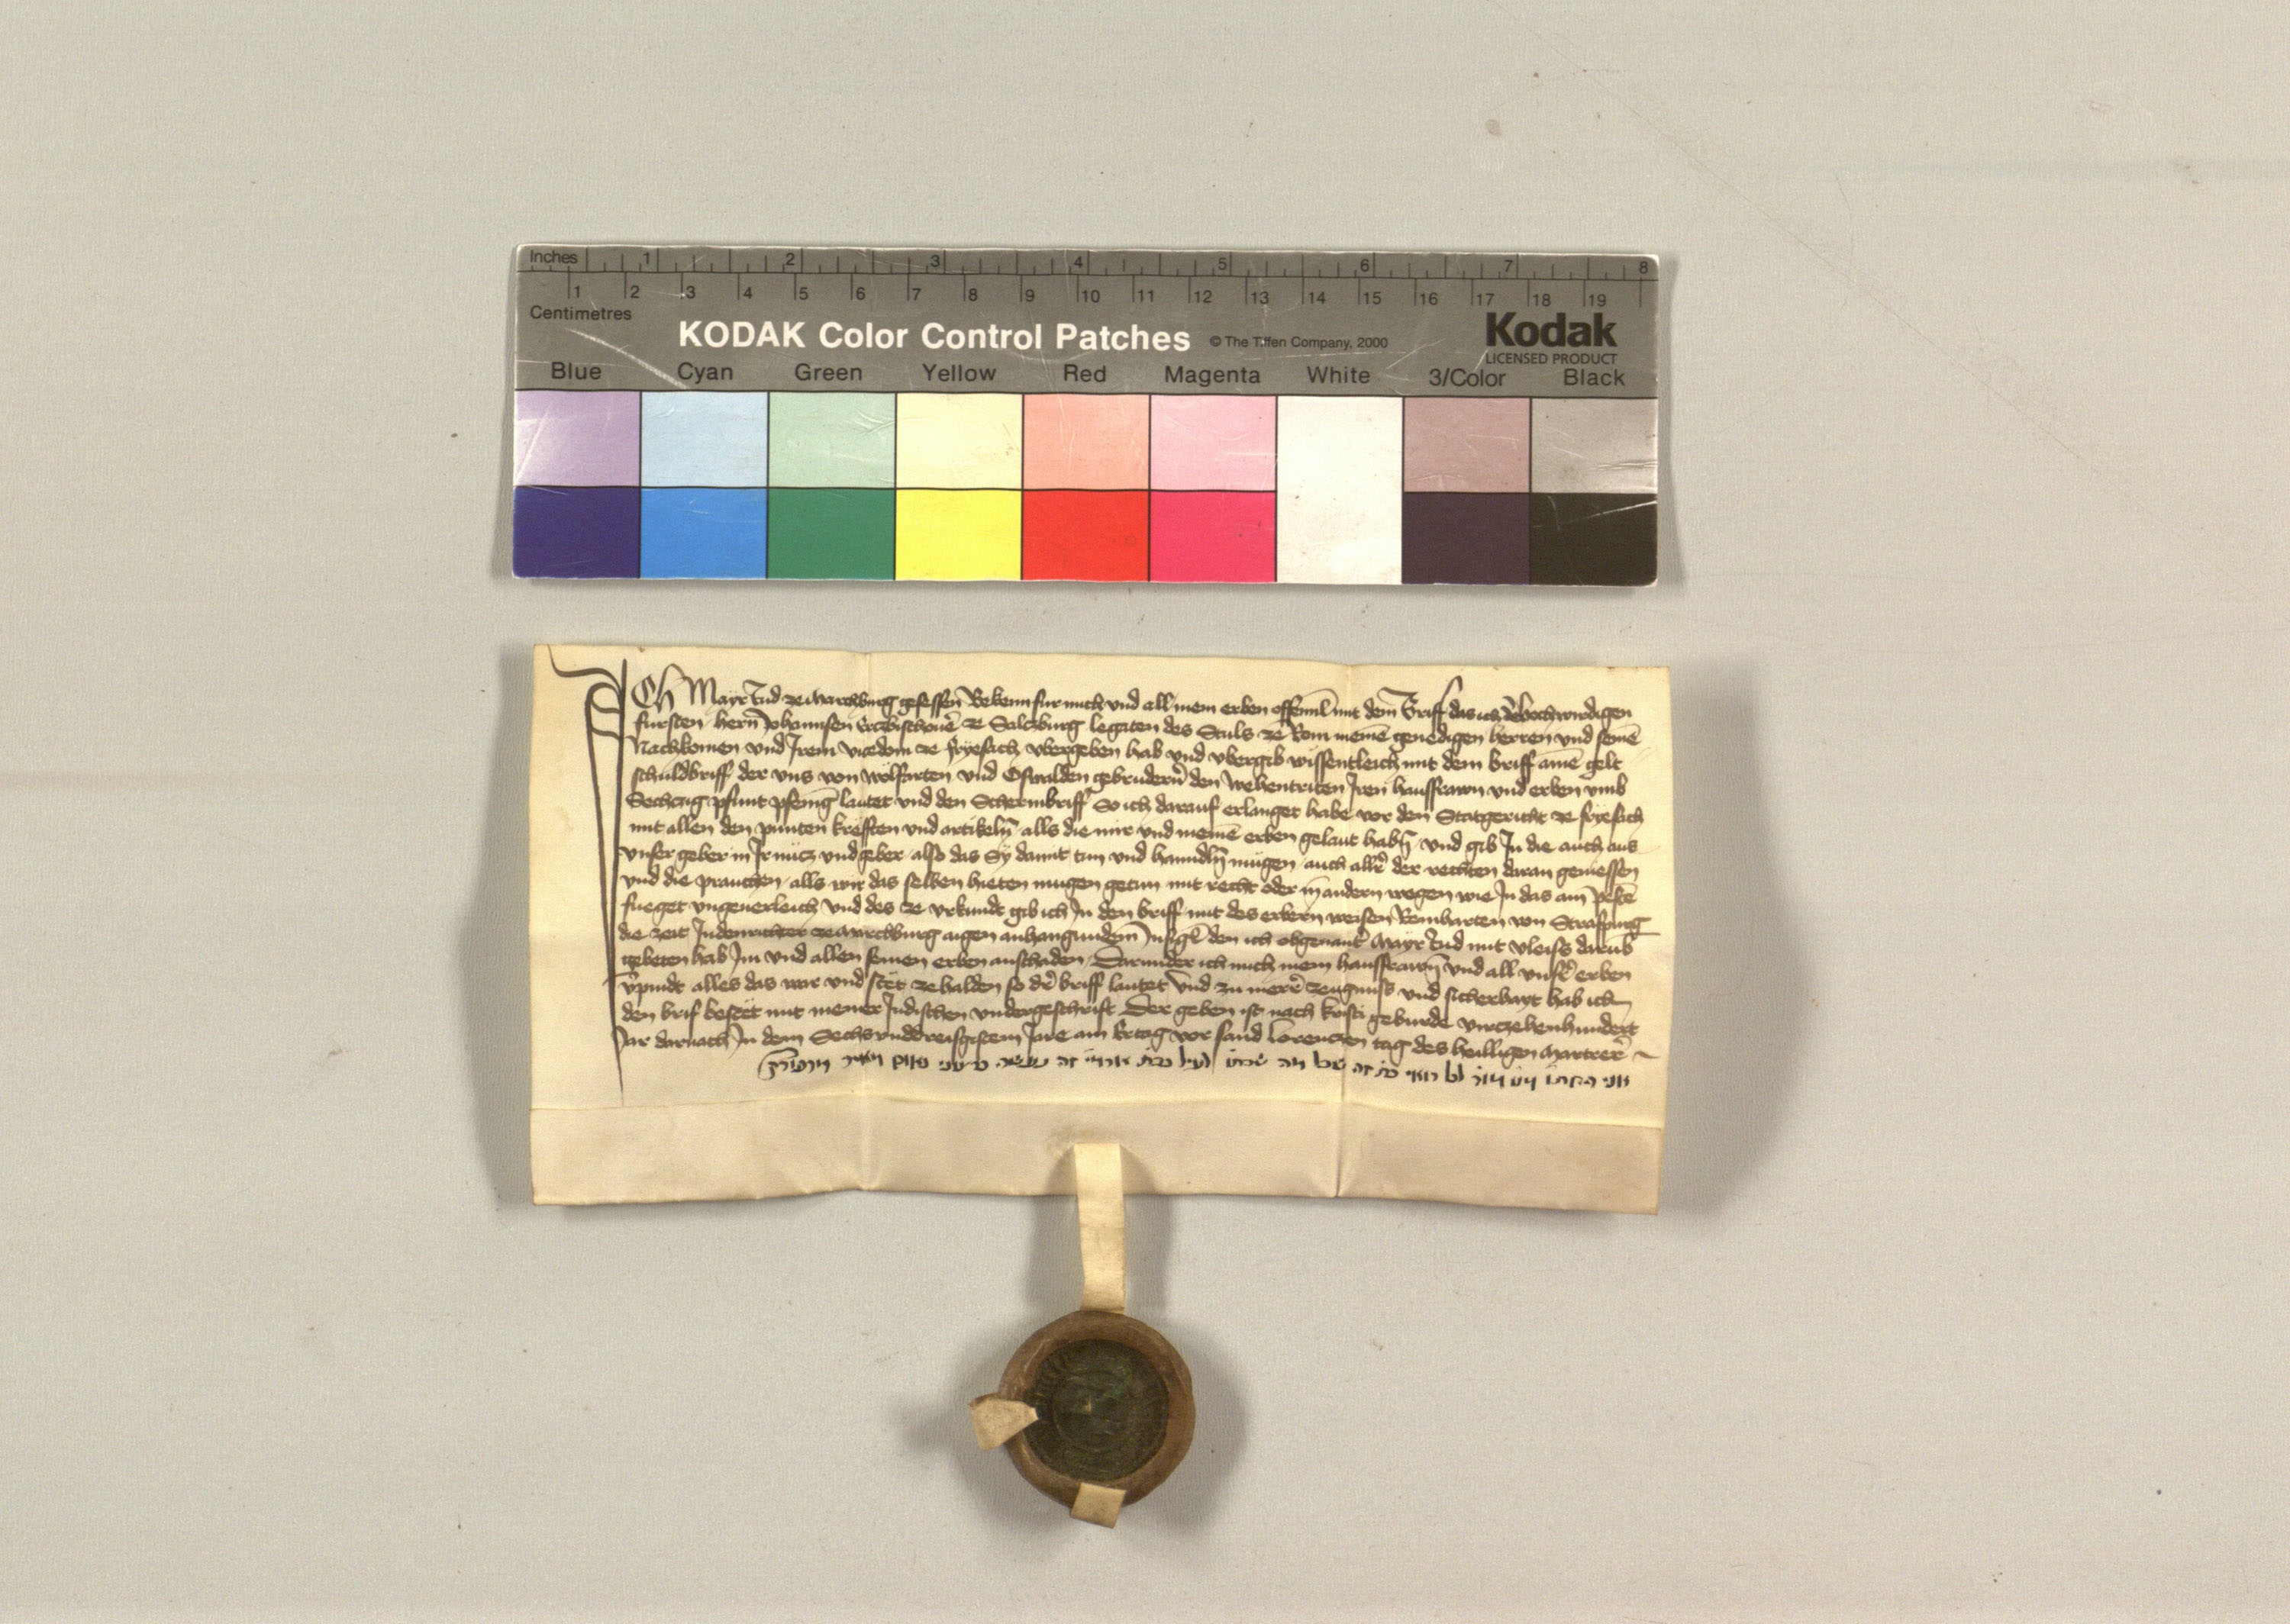 Inches 1 2 3 4 5 6 7 8
1 2 3 4 5 6 7 8 9 10 11 12 13 14 15 16 17 18 19
Centimetres
KODAK Color Control Patches © The Tiffen Company, 2000 Kodak
LICENSED PRODUCT
Blue Cyan Green Yellow Red Magenta White 3/Color Black
ICh Mayr Jud ze Marchburg gesessen Bekenn fur mich und all mein erben offennl mit dem Briff das ich dē hochwirdigen
fursten hern Johannsen Erczbischouē ze Salczburg legaten des Stuls ze Rom meinē genedigen herren und seinē
Nachkomen und Irem vicedom ze fryesach vbergeben hab und vbergib wissentleich mit dem briff ainē gelt
schuldbriff der uns von Wolfarten und Oswalden gebrudern den Webentriten Iren hausfrawn und erben umb
Sechczig pfunt pfenīg lautet und den Schermbriff So ich darauf erlanget habe vor dem Statgericht ze fryesach
mit allen den punten krefften und artikeln alls die mir und meinē erben gelaut habn und gib In die auch aus
unser geber in Ir nucz und geber also das Sy damit tun und hanndln mugen auch allr der rechten daran geniessen
und die prauchen alls wir das selben hieten mugen getun mit recht oder in andern wegen wie In das am pestē
fueget ungeuerleich Und des ze urkundt gib ich In den briff mit des erbern weisen Reinharten von Straspurg
die zeit Judenrichter ze Marchburg aigen anhangundem Insigl den ich obgenantr Mayr Jud mit vleiss darub
gebeten hab Im und allen seinen erben anschaden Darunder ich mich mein hausfrawn und all unsr erben
vpindt alles das war und stet zehalden so dr briff lautet Und zu merer zeugnuss und sicherhayt hab ich
den brif bestet mit meiner Judischen undergeschrift Der geben ist nach kristi geburde vierczehenhundert
Jar darnach In dem Sechsunddreisgistem Jare am Eritag vor sand Lorenczen tag des heilligen Martrer